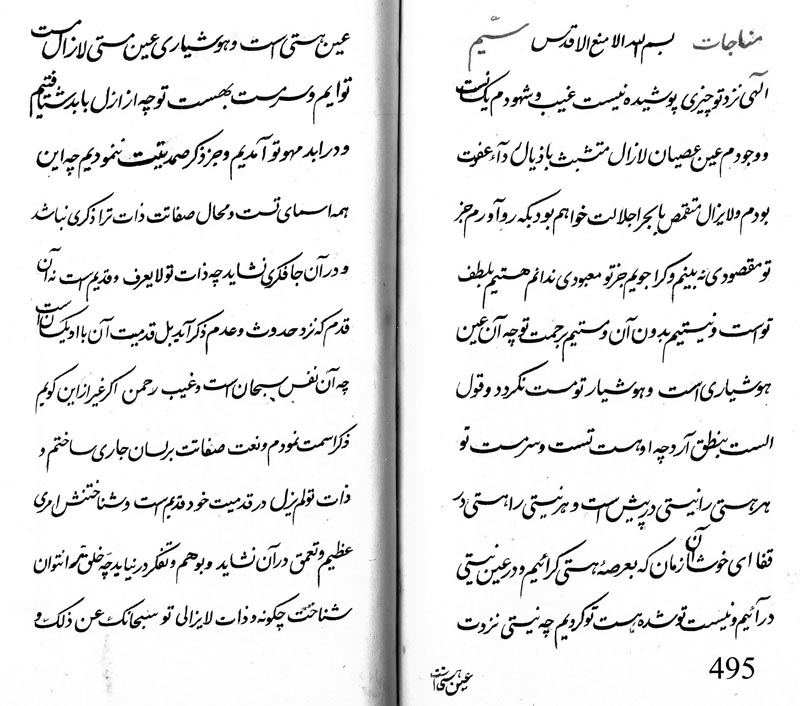 مناجات بسم الله الامنع الاقدس سیّم
الهی نزد تو چیزی پوشیده نیست غیب و شهودم یک نست
و وجودم عین عصیان لازال متشبث باذیال رداء عفوت
بودم و لایزال متقمص بابحر اجلالت خواهم بود بکه رو آورم جز
تو مقصودی نه بینم و کرا جویم جز تو معبودی ندانم هستیم بلطف
تو است و نیستیم بدون آن و مستیم برحمت تو چه آن عین
هوشیاری است و هوشیار تو مست نکردد و قول
الست بنطق آرد چه او هست تست و سرمست تو
هر هستی را نیستی در پیش است و هر نیستی را هستی در
قفا ای خوش آن زمان که بعرصهٔ هستی کرائیم و در عین نیستی
در آئیم و نیست تو شده هست تو کردیم چه نیستی نزدت
عین هستی است
495
عین هستی است و هوشیاری عین مستی لازال مست
تو ایم و سرمست بهست تو چه از ازل بابد شتافتیم
و در ابد مهو تو آمدیم و جز ذکر صمدیتیت ننمودیم چه این
همه اسمای تست و محال صفاتت ذات ترا ذکری نباشد
و در آن جا فکری نشاید چه ذات تو لا یعرف و قدیم است نه آن
قدم که نزد حدوث و عدم ذکر آید بل قدمیت آن با او یکسان است
چه آن نفس سبحان است و غیب رحمن اکر غیر از این کویم
ذکر اسمت نمودم و نعت صفاتت بر لسان جاری ساختم و
ذات تو لم یزل در قدمیت خود قدیم است و شناختنش امری
عظیم و تعمق در آن نشاید و بوهم و تفکر در نیاید چه خلق را نتوان
شناخت چکونه و ذات لایزالی تو سبحانک عن ذلک و